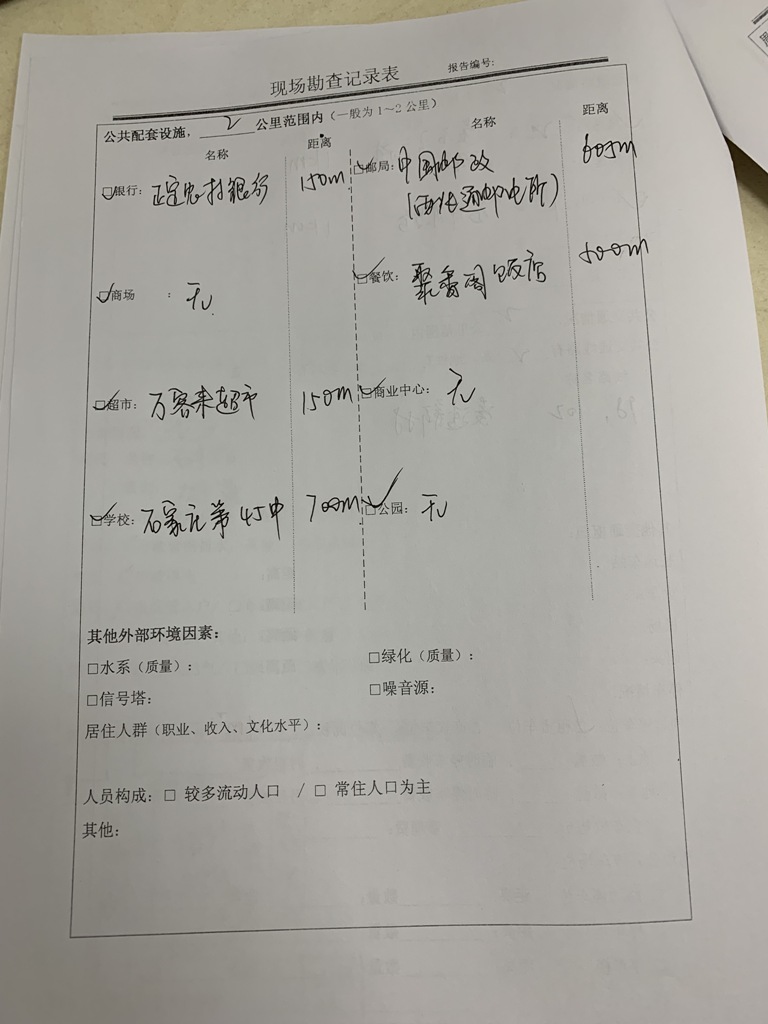 现场勘查记录表 报告编号:
公共配套设施, 2 公里范围内(一般为1~2公里)
名称 距离 名称 距离
☑银行: 正定恒升村镇银行 150m ☑邮局: 中国邮政 605m
(西佐通邮电所)
☑餐饮: 聚香阁饭店 500m
☑商场 : 无
☑超市: 万客来超市 150m ☑商业中心: 无
☑学校: 石家庄第45中 700m ☑公园: 无
其他外部环境因素:
□水系(质量): □绿化(质量):
□信号塔: □噪音源:
居住人群(职业、收入、文化水平):
人员构成: □ 较多流动人口 / □ 常住人口为主
其他: